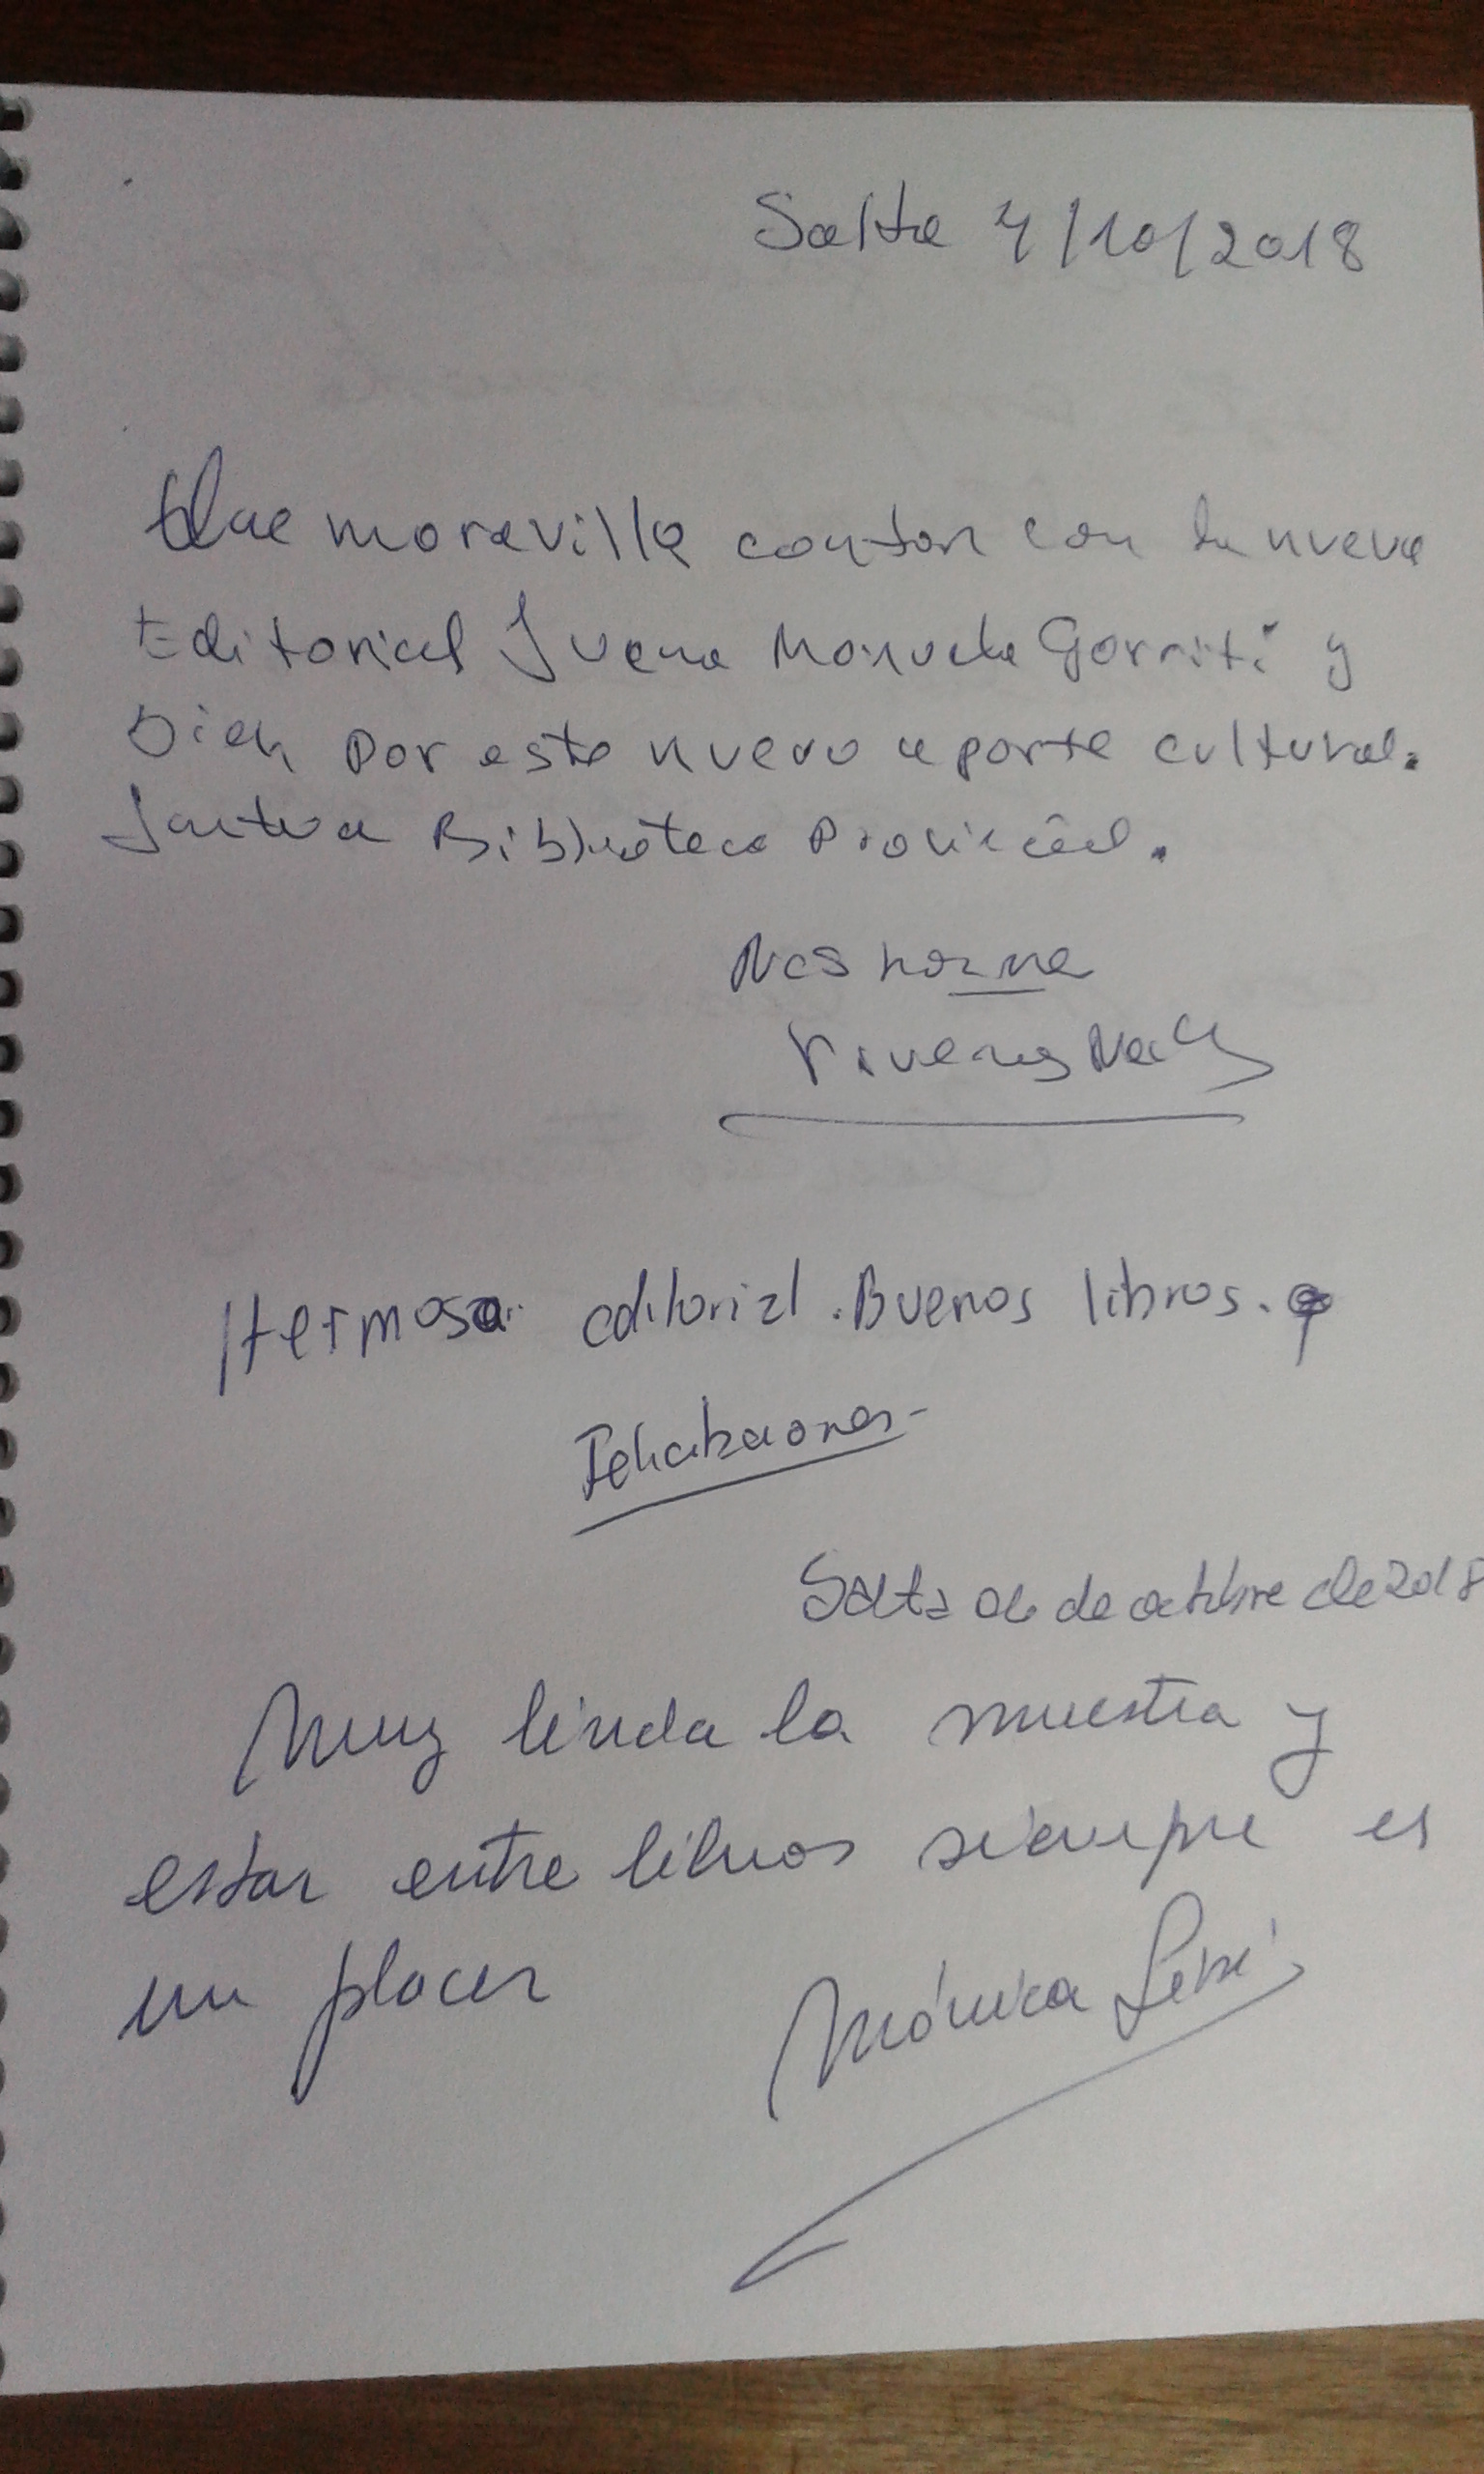 Salta 4/10/2018
Que maravilla contar con la nueva
Editorial Juana Manuela Gorriti y
bien por este nuevo aporte cultural.
Biblioteca Provincial.
Hermosa editorial. Buenos libros.
Felicitaciones-
Salta 06 de octubre de 2018
Muy linda la muestra y
estar entre libros siempre es
un placer
Mónica